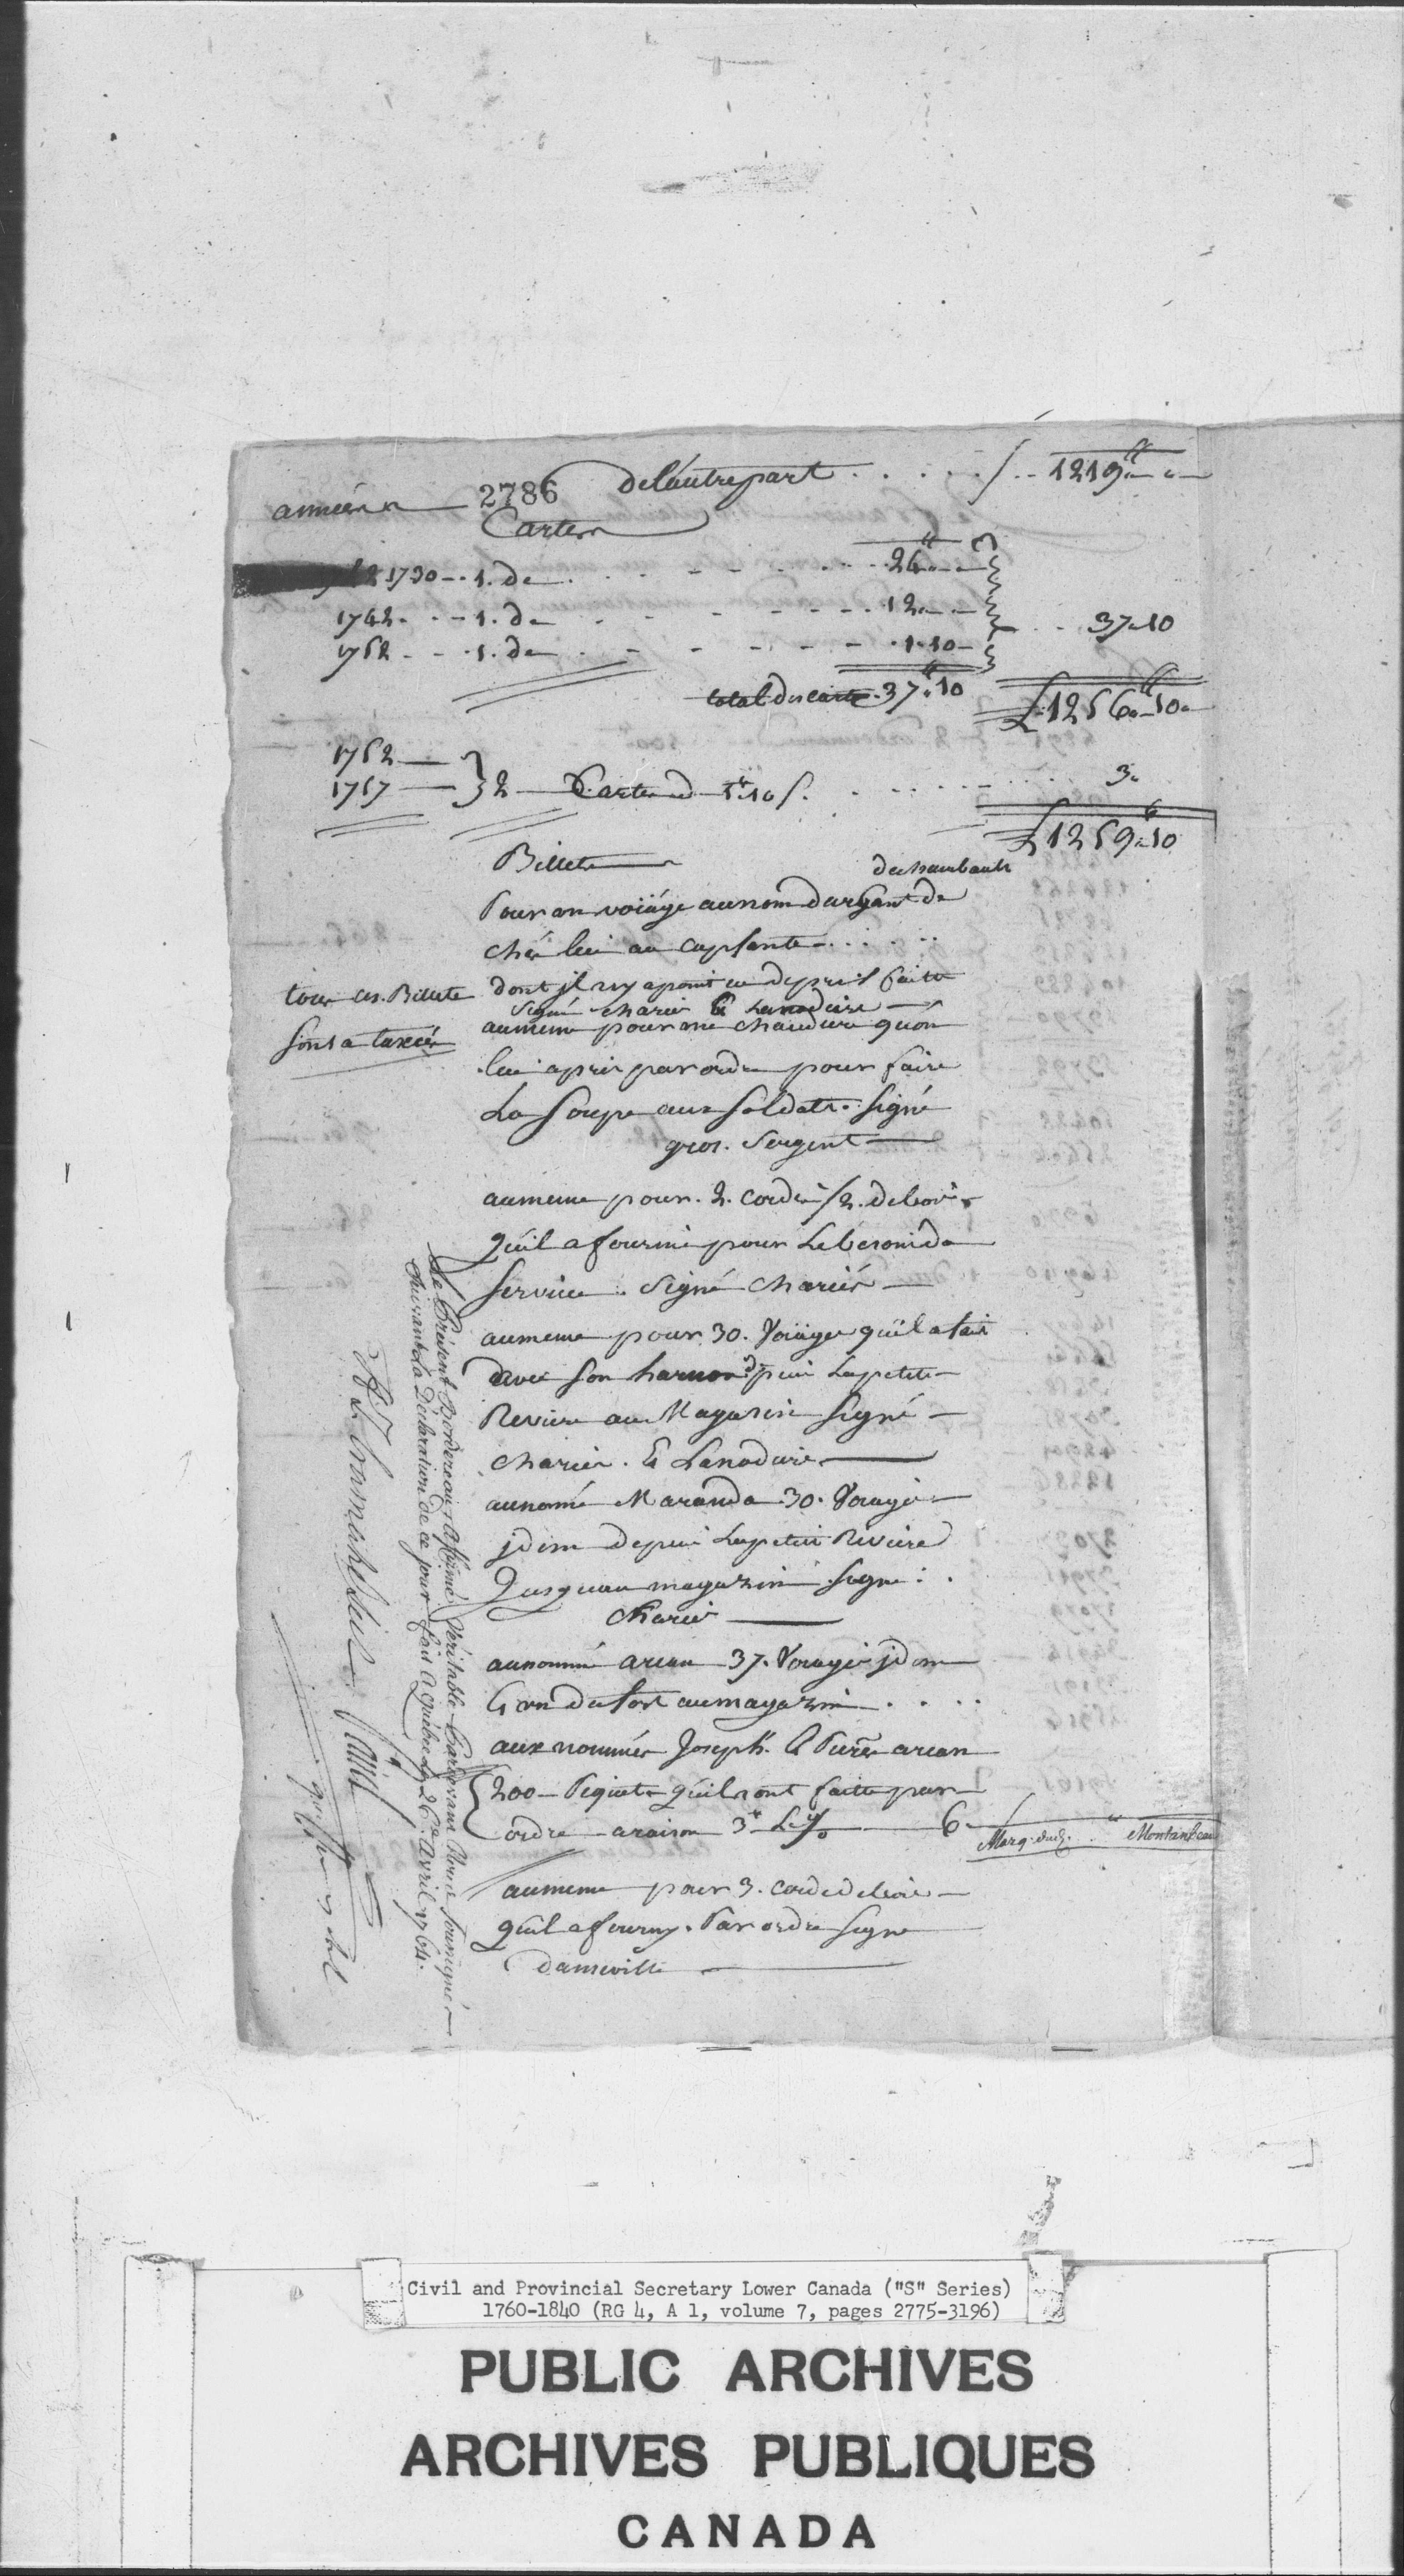 2786 De l'autre part . . . . . £ . . 1219 ""
années
Cartes
1730 - . 1. de . . . . . 26 ""
1742 . . - 1. de . . . . . 12 ""
1752 . . . 1. de . . . . . 1 . 10
37 " 10
total des cartes . 37 " 10
£ 1256 " 10
1752
1757 } 2 Cartes de 1 " 10 s. . . . . . 3 "
£ 1259 " 10
Billets
deschambault
Pour un voiage au nom d'
ché lui au cap sante . . . . .
tous ces Billets
sont a taxcés
dont jl ny a point eu de faitte
Signé Chariés & Lanodiere
au meme pour une chaudiere quon
lui a pris par ordre pour faire
La Soupe aux Soldats. Signé
gros. Sergent
au meme pour. 2. cordes 1/2. de bois
quil a fourni pour le de
Service. Signé Chariés
au meme pour 30. Voiages quil a fait
avec son harnois depuis La petite
Reviere au Magasin Signé
Chariés. & Lanodiere
au nomé Maranda 30. Voiages
jdem depuis La petite Riviere
Jusquau magazin Signé . .
Chariés
au nommé arcan 37. Voiages jdem
& un du fort au magazin . . . .
aux nommés Joseph. & Pierre arcan
200 Piquets quils ont faitte par
ordre a raison 3" Le % 6
Marq. duq. . . " Montanbeau
au meme pour 3. cordes de bois
quil a fourny. Par ordre Signé
danseville
Le Présent Bordereau affirmé Véritable Pardevant Nous Soussigné
Suivant La Declaration de ce jour fait a québec le 26e. Avril 1764.
Civil and Provincial Secretary Lower Canada ("S" Series)
1760-1840 (RG 4, A 1, volume 7, pages 2775-3196)
PUBLIC ARCHIVES
ARCHIVES PUBLIQUES
CANADA